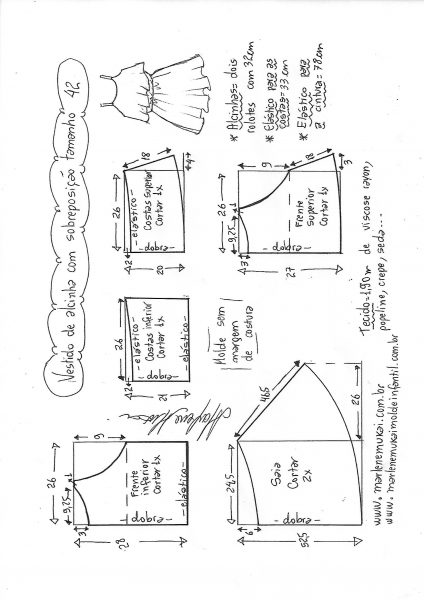 Vestido de alcinha com sobreposição tamanho 42
* Alcinhas = dois
rolotes com 32cm
* Elástico para as
costas = 33 cm
* Elástico para
a cintura = 78cm
18
4
26
elástico
Costas superior
Cortar 1x
dobra
2
20
9
18
3
26
1
9,25
Frente
superior
Cortar 1x
dobra
3
27
26
elástico
Costas inferior
Cortar 1x
elástico
2
21
Molde sem
margem
de costura
Tecido = 1,90 m de viscose rayon,
popeline, crepe, seda...
26
9
1
9,25
Frente
inferior
Cortar 1x
dobra
elástico
3
28
46,5
24,5
26
Saia
Cortar
2x
dobra
6
52,5
www.marlenemukai.com.br
www.marlenemukaimoldeinfantil.com.br